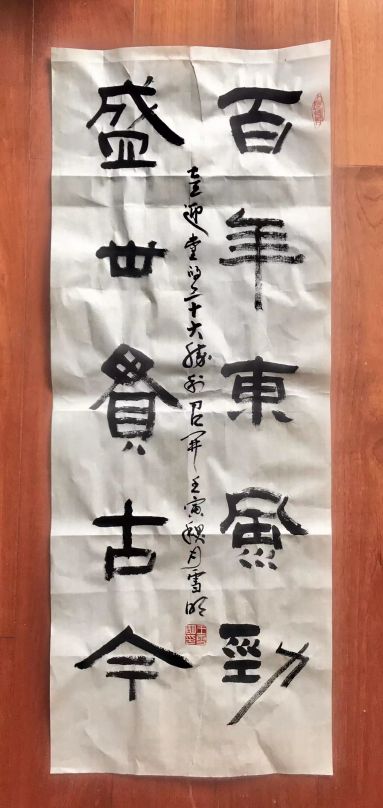 百年東風勁
盛世貫古今
喜迎党的二十大胜利召开壬寅秋月雪明